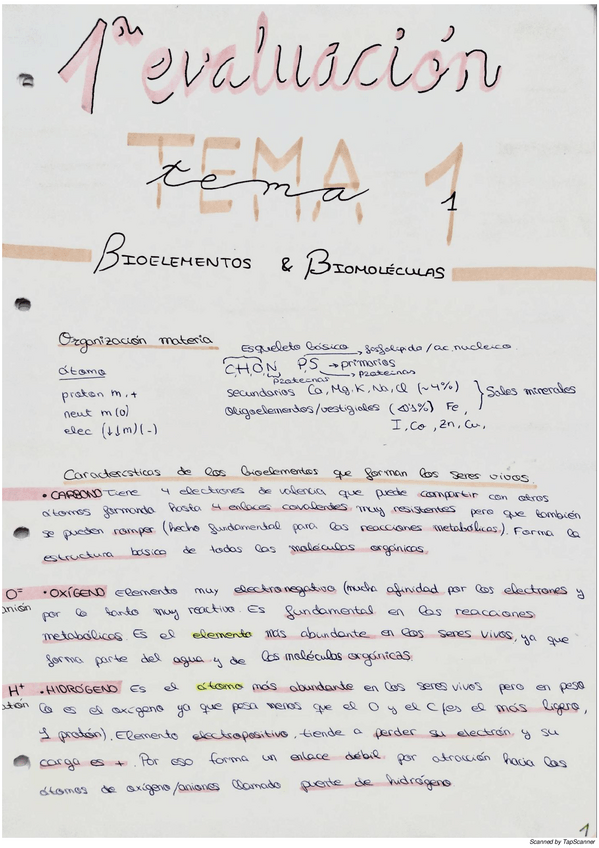 1ra evaluación
TEMA 1
tema 1
BIOELEMENTOS & BIOMOLÉCULAS
Organización materia
Esqueleto básico → fosfolípido/ac. nucleico
átomo
CHON PS → primarios
proteinas → proteinas
proton m, +
secundarios Ca, Mg, K, Na, Cl (~4%) } Sales minerales
neut m (0)
Oligoelementos/vestigiales (<0'1%) Fe,
elec (↓↓m) (-)
I, Co, Zn, Cu,
Características de los bioelementos que forman los seres vivos
• CARBONO Tiene 4 electrones de valencia que puede compartir con otros
átomos formando hasta 4 enlaces covalentes muy resistentes pero que también
se pueden romper (hecho fundamental para las reacciones metabólicas). Forma la
estructura básica de todas las moléculas orgánicas.
O= • OXÍGENO Elemento muy electronegativo (mucha afinidad por los electrones y
anión por lo tanto muy reactivo. Es fundamental en las reacciones
metabólicas. Es el elemento más abundante en los seres vivos, ya que
forma parte del agua y de las moléculas orgánicas.
H+ • HIDRÓGENO Es el átomo más abundante en los seres vivos pero en peso
lo es el oxígeno ya que pesa menos que el O y el C (es el más ligero,
1 protón). Elemento electropositivo, tiende a perder su electrón y su
carga es +. Por eso forma un enlace débil por atracción hacia los
átomos de oxígeno/aniones llamado puente de hidrógeno
1
Scanned by TapScanner